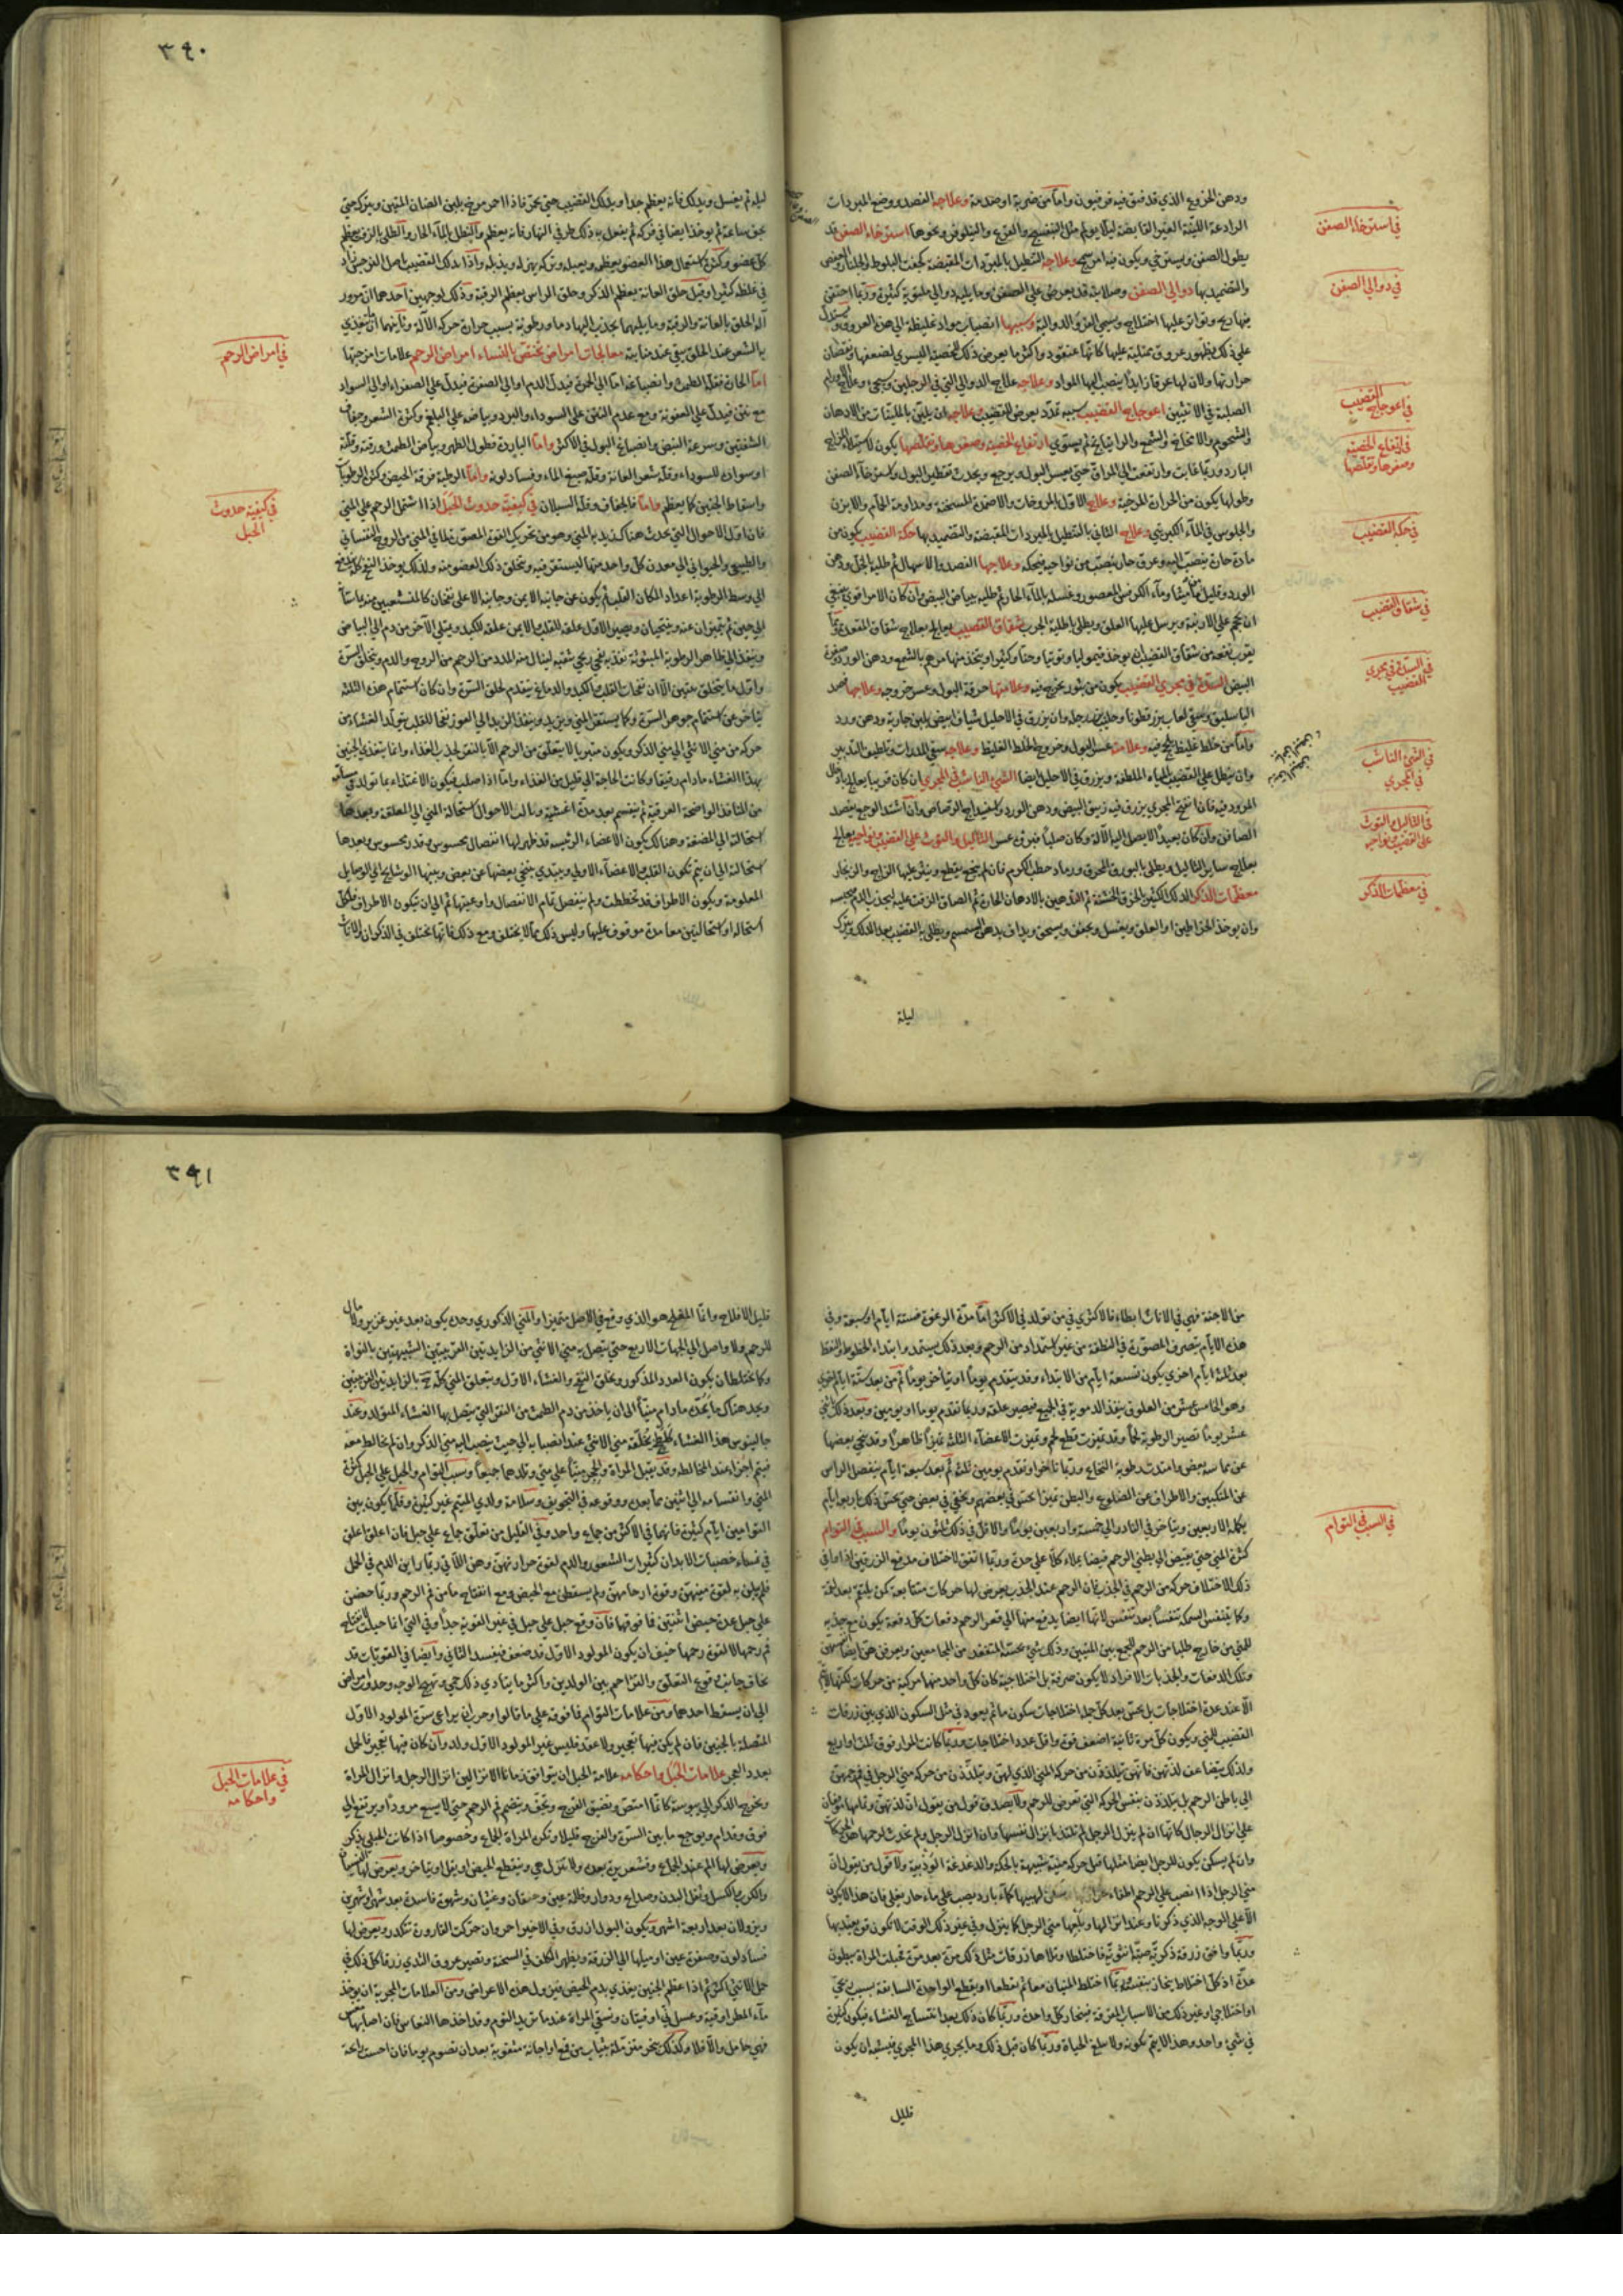 في استرخاء الصفن
في دوالي الصفن
في اعوجاج القضيب
في ارتفاع الخصية
وصغرها وتقلصها
في حكة القضيب
في شقاق القضيب
في السدة في مجري
القضيب
في الشيء الناشب
في المجري
في الثآليل والتوث
على القضيب ونواحيه
في معظمات الذكر
ودهن الخروع الذي قد فتق فيه فرفيون واما من ضربة او صدمة وعلاجه الفصد ووضع المبردات
الرادعة اللينة الغير القابضة ليلا يولم مثل البنفسج والقرع والنيلوفر ونحوها استرخاء الصفن قد
يطول الصفن ويسترخي ويكون فيه امر سمج وعلاجه التنطيل بالمبردات المقبضة كجفت البلوط والجلنار والعفص
والتضميد بها دوالي الصفن وصلابته قد يعرض على الصفن وما يليه دوالي ملتوية كثيرة وربما احتقن
فيها ريح وتواتر عليها اختلاج وسمي القرو الدوالية وسببها انصباب مواد غليظة الي هذه العروق
علي ذلك بظهور عروق ممتلية عليها كانها عنقود واكثر ما يعرض ذلك للخصية اليسري لضعفها ونقصان
حرارتها ولان لها عرقا زايدا ينصب اليها المواد وعلاجه علاج الدوالي التي في الرجلين وسيجيء
الصلبة في الانثيين اعوجاج القضيب سببه تمدد يعرض للقضيب وعلاجه ان يلين بالملينات من الادهان
والشحوم والامخاخ والشمع والراتيانج ثم يسوي ارتفاع الخصية وصغرها وتقلصها يكون لاستيلاء المزاج
البارد وربما غابت وارتفعت الي المراق حتي يعسر البول ويوجع ويحدث تقطير البول واسترخاء الصفن
وطولها يكون من الحرارة المرخية وعلاج الاول المروخات والاضمدة المسخنة ومداومة الحمام والابزن
والجلوس في الماء الكبريتي وعلاج الثاني بالتنطيل بالمبردات المقبضة والتضميد بها حكة القضيب يكون من
مادة حارة ينصب اليه وعرق حار ينصب من نواحيه فيحكه وعلاجها الفصد والاسهال ثم طليه بالخل ودهن
الورد وقليل ماميثا وماء الكرفس المعصور وغسله بالماء الحار ثم طليه ببياض البيض وان كان الامر اقوي ينبغي
ان يحجم علي الاربية ويرسل عليها العلق ويطلي باطلية الجرب شقاق القضيب يعالج بعلاج شقاق المقعدة ومما
يقرب نفعه من شقاق القضيب ان يوخذ قيموليا وتوتيا وحنا وكثيرا ويتخذ منها مرهم بالشمع ودهن الورد وصفرة
البيض السدة في مجري القضيب يكون من بثور تخرج فيه وعلامتها حرقة البول وعسر خروجه وعلاجها فصد
الباسليق وسقي لعاب بزر قطونا وحليب بزر رجلة وان يزرق في الاحليل شياف ابيض بلبن جارية ودهن ورد
واما من خلط غليظ لحج فيه وعلامته عسر البول وخروج الخلط الغليظ وعلاجه سقي المدرات وتلطيف التدبير
وان ينطل علي القضيب المياه الملطفة ويزرق في الاحليل ايضا الشيء الناشب في المجري ان كان قريبا يعالج بادخال
المرود فيه فان انفتح المجري يزرق فيه زيبق البيض ودهن الورد واسفيداج الرصاص وان اشتد الوجع يفصد
الصافن وان كان بعيدا لا يصل اليه الآلة وكان صلبا فيرق عسر الثآليل والتوث على القضيب ونواحيه يعالج
بعلاج ساير الثآليل ويطلي بالبورق المحرق ورماد حطب الكرم فان لم ينجع يقطع وينثر عليها الزاج والزنجار
معظمات الذكر الدلك الكثير بالخرق الخشنة ثم التدهين بالادهان الحارة ثم الصاق الزفت عليه ليجذب الدم ويحبسه
وان يوخذ الخراطين او العلق ويغسل ويجفف ويسحق ويداف بدهن السمسم ويطلي به القضيب بعد الدلك ويترك
ليلة
٣٩٠
في امراض الرحم
في كيفية حدوث
الحبل
ليلة ثم يغسل ويدلك فانه يعظم جدا ويدلك القضيب حتي يحمر فاذا احمر مرخ بلبن الضان المتين ويترك حتي
يجف ساعة ثم يوخذ ايضا في فركه ثم يفعل به ذلك طرفي النهار فانه يعظم والتنطل بالماء الحار والطلي بالزفت يعظم
كل عضو وكثرة استعمال هذا العضو يعظمه ويعبله وتركه يهزله ويذبله واذا دلك القضيب باصل النرجس زاد
في غلظه كثيرا وقيل حلق العانة يعظم الذكر وحلق الراس يعظم الرقبة وذلك لوجهين احدهما ان مرور
آلة الحلق بالعانة والرقبة وما يليهما يجذب اليها دما ورطوبة بسبب حرارة حركة الآلة وثانيهما ان المغذي
بالشعر عند الحلق يبقي عند منابته معالجات امراض تختص بالنساء امراض الرحم علامات امزجتها
اما الحارة فقلة الطمث وانصباغه اما الي الحمرة فيدل الدم او الي الصفرة فيدل علي الصفراء او الي السواد
مع نتن فيدل علي العفونة ومع عدم النتن علي السوداء والبرد وبياضه علي البلغم وكثرة الشعر وجفاف
الشفتين وسرعة النبض وانصباغ البول في الاكثر واما الباردة فطول الطهر وبياض الطمث ورقته وقلته
او سواده للسوداء وقلة شعر العانة وقلة صبغ الماء وفساد لونه واما الرطبة فرقة الحيض وكثرة الرطوبات
واسقاط الجنين كما يعظم واما فالجفاف وقلة السيلان في كيفية حدوث الحبل اذا اشتمل الرحم علي المني
فان اول الاحوال التي تحدث هناك زبدية المني وهو من تحريك القوة المصورة لما في المني من الروح النفساني
والطبيعي والحيواني الي معدن كل واحد منها ليستقر فيه وتخلق ذلك العضو منه ولذلك يوجد النفخ كله
الي وسط الرطوبة اعدادا لمكان القلب ثم يكون عن جانبه الايمن وجانبه الاعلي نفخان كالمنشعبين منه
الي حين ثم يتميزان عنه ويتنحيان ويصير الاول علقة للقلب والايمن علقة للكبد ويمتلي الآخر من دم الي البياض
وينفذ الي ظاهر الرطوبة المبثوثة نفذ به نفخي ريحي شقبه لينال منه المدد من الرحم من الروح والدم ويتخلق السرة
واول ما يتخلق منين الا ان نفخات القلب والكبد والدماغ يتقدم لخلق السرة وان كان استتمام هذه الثلثة
يتاخر عن استتمام جوهر السرة وكما يستقر المني ويزبد وينفذ الزبد الي الغور نفخا للقلب يتولد الغشاء من
حركة من مني الانثي الي مني الذكر ويكون متبريا لا يتعلق من الرحم الا بالنقر لجذب الغذاء وانما يتغذي الجنين
بهذا الغشاء ما دام رقيقا وكانت الحاجة الي قليل من الغذاء واما اذا صلب فيكون الاغتذاء بما تولد في
من المنافذ الواضحة العرقية ثم ينقسم بعد مدة اغشية وثالث الاحوال استحالة المني الي العلقة وبعدها
استحالته الي المضغة وهنالك يكون الاعضاء الرئيسة قد ظهر لها انفصال محسوس وقدر محسوس وبعدها
استحالته الي ان يتم تكون القلب والاعضاء الاولي ويبتدي يتنحي بعضها عن بعض وبينها الوشايج الي الوصايل
المعلومة ويكون الاطراف قد تخططت ولم ينفصل تمام الانفصال واوعيتها ثم الي ان يتكون الاطراف ولكل
استحالة او استحالتين معا مدة موقوف عليها وليس ذلك مما لا يختلف ومع ذلك فانها تختلف في الذكران والاناث
في السبب في التوام
من الاجنة فهي في الاناث ابطاء فالاكثري في من تولد في الاكثر اما مدة الرغوة فستة ايام او سبعة وفي
هذه الايام يتصرف المصورة في النطفة من غير استمداد من الرحم وبعد ذلك يستمد وابتداء الخطوط والنقط
بعد ثلثة ايام اخري يكون تسعة ايام من الابتداء وقد يتقدم يوما او يتأخر يوما ثم من بعد ستة ايام اخري
وهو الخامس عشر من العلوق ينفذ الدموية في الجميع فيصير علقة وربما تقدم يوما او يومين وبعد ذلك باثني
عشر يوما تصير الرطوبة لحما وقد تميزت قطع لحم وتميزت الاعضاء الثلثة تميزا ظاهرا وقد تنحي بعضها
عن مماسة بعض وامتدت رطوبة النخاع وربما تاخر او تقدم يومين ثلثة ثم بعد سبعة ايام ينفصل الراس
عن المنكبين والاطراف عن الضلوع والبطن تميزا يحس في بعضهم ويخفي في بعض حتي يحس ذلك باربع ايام
يكمله الاربعين ويتاخر في النادر الي خمسة واربعين يوما والاقل في ذلك ثلثون يوما والسبب في التوام
كثرة المني حتي يفيض الي بطني الرحم فيضا يملاء كلا علي حدة وربما اتفق لاختلاف مدفع الزرقين اذا وافي
ذلك لاختلاف حركة من الرحم في الجذب فان الرحم عند الجذب يعرض لها حركات متتابعة كمن يلتقم بعد لقمة
وكما يتنفس السمكة تنفسا بعد تنفس لانها ايضا يدفع منها الي قعر الرحم دفعات كل دفعة يكون مع جذبه
للمني من خارج طلبا من الرحم للجمع بين المنيين وذلك شيء يحسه المتفقد من المجامعين ويعرفن هن ايضا
وتلك الدفعات والجذبات لا يكون صرفة بل اختلاجية كان كل واحد منها مركبة من حركات لكنها لا يتم
الا عند عدة اختلاجات بل يحس بعد كل جملة اختلاجات سكون ما ثم يعود في مثل السكون الذي بين زرقات
القضيب للمني ويكون كل مرة ثانية اضعف قوة واقل عدد اختلاجات وربما كانت المرار فوق ثلث او اربع
ولذلك يتضاعف لذتهن فانهن يتلذذن من حركة المني الذي لهن ويتلذذن من حركة مني الرجل في رحمهن
الي باطن الرحم بل يتلذذن بنفس الحركة التي تعرض للرحم ولا يصدق قول من يقول ان لذتهن وتمامها موقوفان
علي انزال الرجال كانها ان لم ينزل الرجل لم تلتذ بانزال نفسها وان انزل الرجل ولم يحدث لرحمها هذه الحركات
وان لم يسكن يكون للرجل ايضا مثلها قبل حركة منيه شبيهة بالحكة والدغدغة الودية ولا قول من يقول ان
مني الرجل اذا انصب علي الرحم اطفاء لهيبها كماء بارد يصب علي ماء حار يغلي فان هذا لا يكون
الا علي الوجه الذي ذكرنا وعند انزالها وبلعها مني الرجل كما ينزل وفي غير ذلك الوقت لا تكون قوة يعتد بها
وربما وافق زرقة ذكرية صبة انثوية فاختلطا وتلاها زرقات مثل ذلك مرة بعد مرة فحبلت المراة ببطون
عدة اذ كل اختلاط ينحاز بنفسه وربما اختلط المنيان معا ثم تقطعا او يقطع الواحدة السابقة بسبب ريحي
او اختلاجي او غير ذلك من الاسباب المفرقة فينحاز كل واحدة وربما كان ذلك بعد انتساج الغشاء فيكون كثيرة
في شيء واحد وهذا لا يتم تكونه ولا يبلغ الحياة وربما كان قبل ذلك وما يجري هذا المجري فيشبه ان يكون
قليل
٣٩١
في علامات الحبل
واحكامه
قليل الافلاح وانما المفلح هو الذي وقع في الاصل متميزا والمني الذكوري وحده يكون بعد غير غزير ولا مالئ
للرحم ولا واصل الي الجهات الاربع حتي يتصل به مني الانثي من الزايدتين القرنيتين الشبيهتين بالنواة
وكما يختلطان يكون العدد المذكور وتخلق النفخ والغشاء الاول ويتعلق المني كله ح بالزايدتين القرنيتين
ويجد هناك ما يمده ما دام منيا الي ان ياخذ من دم الطمث من النقر التي يتصل بها الغشاء المتولد وعند
جالينوس هذا الغشاء كلطخ تخلفه مني الانثي عند انصبابه الي حيث ينصب اليه مني الذكر وان لم يخالط معه
فيتم اجزاء عند المخالطة وقد يقبل المراة والحجر منيا علي مني وتلدهما جميعا وسبب التوام والحبل علي الحبل كثرة
المني وانقسامه الي اثنين مما بعد ووقوعه في التجويف وسلامة ولدي المتئم غير كثير وقلما يكون بين
التوامين ايام كثيرة فانهما في الاكثر من جماع واحد وفي القليل من تعلق جماع علي حبل فان اعلق اعلق
في نساء خصبات الابدان كثيرات الشعور والدم لقوة حرارتهن وهن اللاتي ربما راين الدم في الحمل
فلم يبلين به لقوة منيهن وقوة ارحامهن ولم يسقطن مع الحيض ومع انفتاح ما من فم الرحم وربما حضن
علي حبل عدة حيض اثنتين فما فوقها فان وقع حبل علي حبل في غير القوية جدا وفي التي انما حبلت لانفتاح
فم رحمها لا لقوة رحمها خيف ان يكون المولود الاول قد ضعف فيفسد الثاني وايضا في القويات قد
يخاف جانب وقوع التعلق والتزاحم بين الولدين واكثر ما يتادي ذلك حمي وتهيج الوجه وحدوث امراض
الي ان يسقط احدهما ومن علامات التوام فما فوقه علي ما قالوا وجرب ان يراعي سرة المولود الاول
المتصلة بالجنين فان لم يكن فيها تعجير ولا عقد فليس غير المولود الاول ولد وان كان فيها تعجير فالحمل
بعدد العجر علامات الحبل واحكامه علامة الحبل ان يتوافق زمانا الانزالين انزال الرجل وانزال المراة
ويخرج الذكر الي يبوسة كانما امتص ويضيق الفرج ويجف وينضم فم الرحم حتي لا يسع مرودا ويرتفع الي
فوق وقدام ويوجع ما بين السرة والفرج قليلا وتكره المراة الجماع وخصوصا اذا كانت الحبلي بذكر
ويعرض لها الم عند الجماع وقشعريرة بعده ولا تنزل هي وينقطع الحيض او يقل او يتاخر ويعرض لها الغثيان
والكرب والكسل وثقل البدن وصداع ودوار وظلمة عين وخفقان وغثيان وشهوة فاسدة بعد شهر او شهرين
ويزولان بعد اربعة اشهر ويكون البول ازرق وفي الاخير احمر وان حركت القارورة تتكدر ويعرض لها
فساد لون وصفرة عين او ميلها الي الزرقة ويظهر الكلف في السحنة وتصير عروق الثدي زرقا كل ذلك في
حمل الانثي اكثر ثم اذا عظم الجنين يغذي بدم الحيض فيزول هذه الاعراض ومن العلامات المجربة ان يوخذ
ماء المطر اوقية وعسل ني اوقيتان وتسقي المراة عند ما تريد النوم وقد اخذها النعاس فان اصابها مغص
فهي حامل والا فلا وكذلك تبخر متزملة بثياب من قمع او اجانة مثقوبة بعد ان تصوم يوما فان احست رائحة